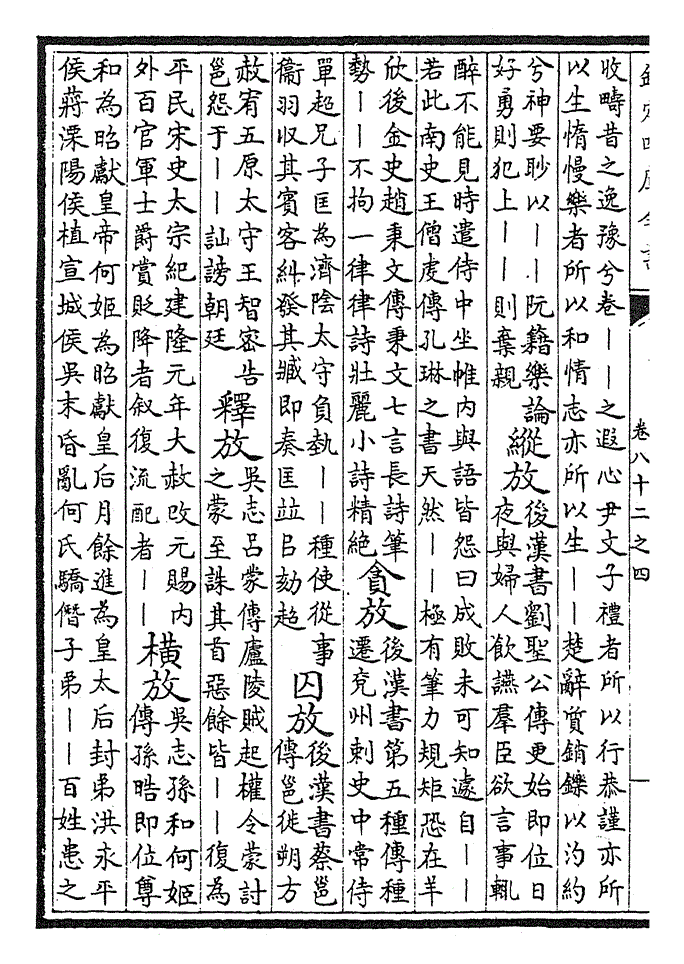 欽定四庫全書
卷八十二之四
收疇昔之逸豫兮卷——之遐心尹文子禮者所以行恭謹亦所
以生惰慢樂者所以和情志亦所以生——楚辭質銷鑠以汋約
兮神要眇以——阮籍樂論
好勇則犯上——則棄親
縱放
後漢書劉聖公傳更始即位日
夜與婦人飲讌羣臣欲言事輒
醉不能見時遣侍中坐帷内與語皆怨曰成敗未可知遽自——
若此南史王僧虔傳孔琳之書天然——極有筆力規矩恐在羊
欣後金史趙秉文傳秉文七言長詩筆
勢——不拘一律律詩壯麗小詩精絶
貪放
後漢書第五種傳種
遷兗州刺史中常侍
單超兄子匡為濟陰太守負埶——種使從事
衞羽収其賓客糾發其臧即奏匡竝以劾超
囚放
後漢書蔡邕
傳邕徙朔方
赦宥五原太守王智密告
邕怨于——訕謗朝廷
釋放
吳志呂蒙傳廬陵賊起權令蒙討
之蒙至誅其首惡餘皆——復為
平民宋史太宗紀建隆元年大赦改元賜内
外百官軍士爵賞貶降者叙復流配者——
横放
吳志孫和何姬
傳孫晧即位尊
和為昭獻皇帝何姬為昭獻皇后月餘進為皇太后封弟洪永平
侯蔣溧陽侯植宣城侯吳末昏亂何氏驕僭子弟——百姓患之